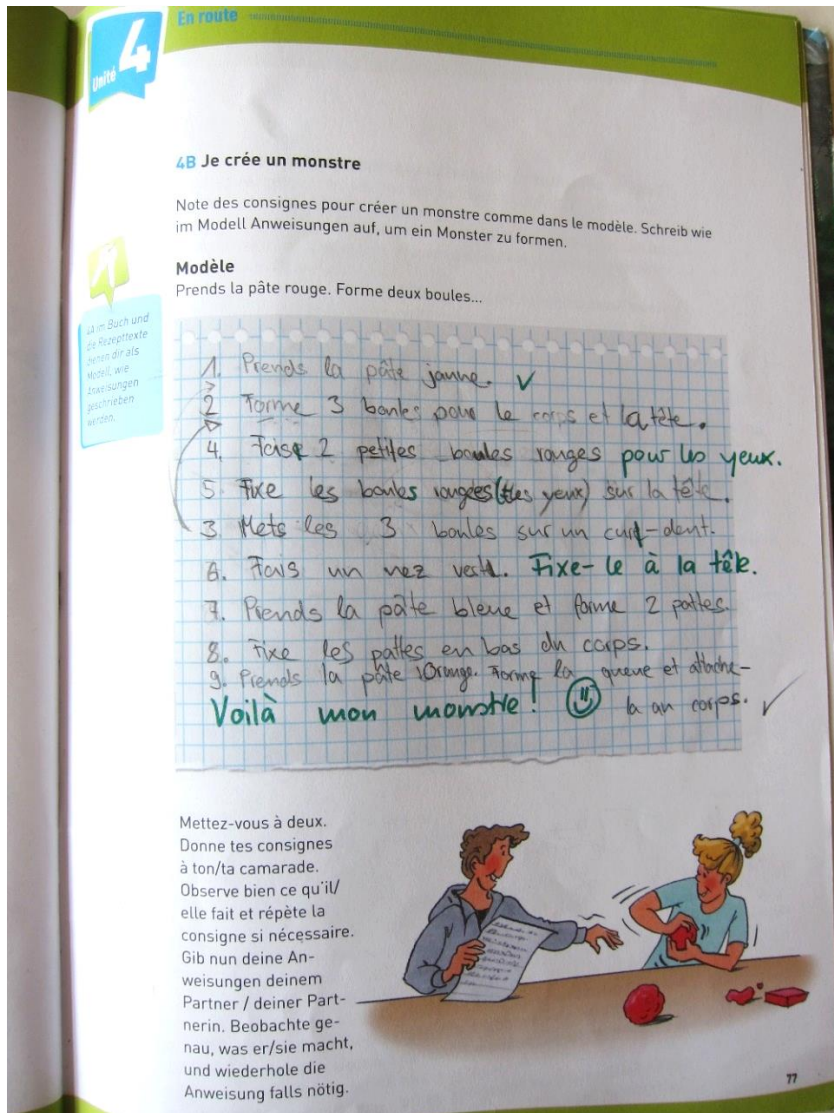 En route
Unité 4
4B Je crée un monstre
Note des consignes pour créer un monstre comme dans le modèle. Schreib wie
im Modell Anweisungen auf, um ein Monster zu formen.
Modèle
Prends la pâte rouge. Forme deux boules...
4A im Buch und
die Rezepttexte
dienen dir als
Modell, wie
Anweisungen
geschrieben
werden.
1. Prends la pâte jaune. ✓
2 Forme 3 boules pour le corps et la tête.
4. Fais 2 petites boules rouges pour les yeux.
5. Fixe les boules rouges (les yeux) sur la tête.
3. Mets les 3 boules sur un cure-dent.
6. Fais un nez vert. Fixe-le à la tête.
7. Prends la pâte bleue et forme 2 pattes.
8. Fixe les pattes en bas du corps.
9. Prends la pâte Orange. Forme la queue et attache-
la au corps. ✓
Voilà mon monstre!
Mettez-vous à deux.
Donne tes consignes
à ton/ta camarade.
Observe bien ce qu'il/
elle fait et répète la
consigne si nécessaire.
Gib nun deine An-
weisungen deinem
Partner / deiner Part-
nerin. Beobachte ge-
nau, was er/sie macht,
und wiederhole die
Anweisung falls nötig.
77